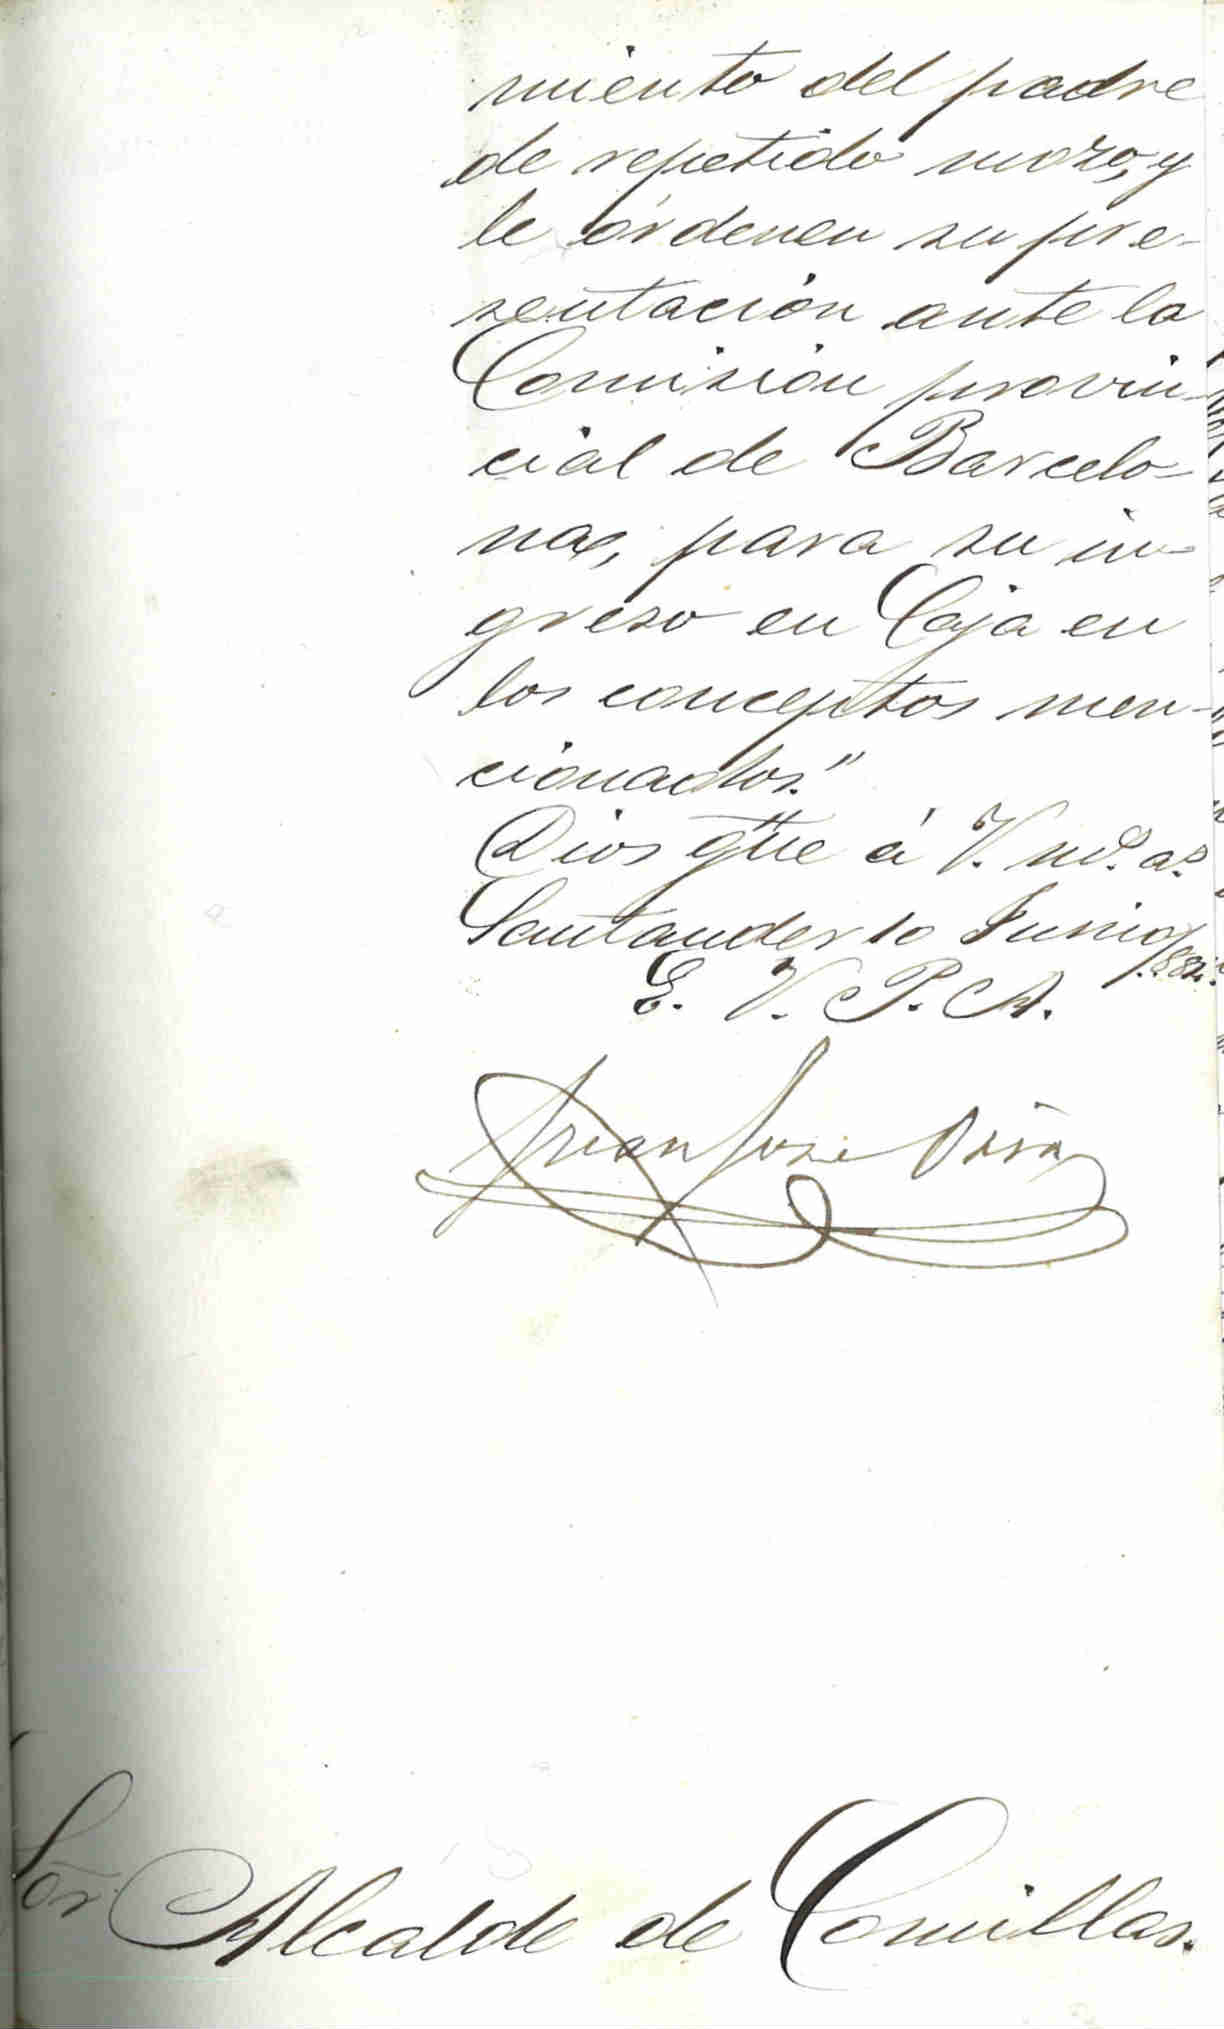 miento del padre
de repetido mozo, y
le órdenen su pre-
sentación ante la
Comisión provin-
cial de Barcelo-
na, para su in-
greso en Caja en
los conceptos men-
cionados."
Dios güe á V. ms. as.
Santander 10 Junio/882.
E. V. P. A.
Juan José Oria
Sör. Alcalde de Comillas.